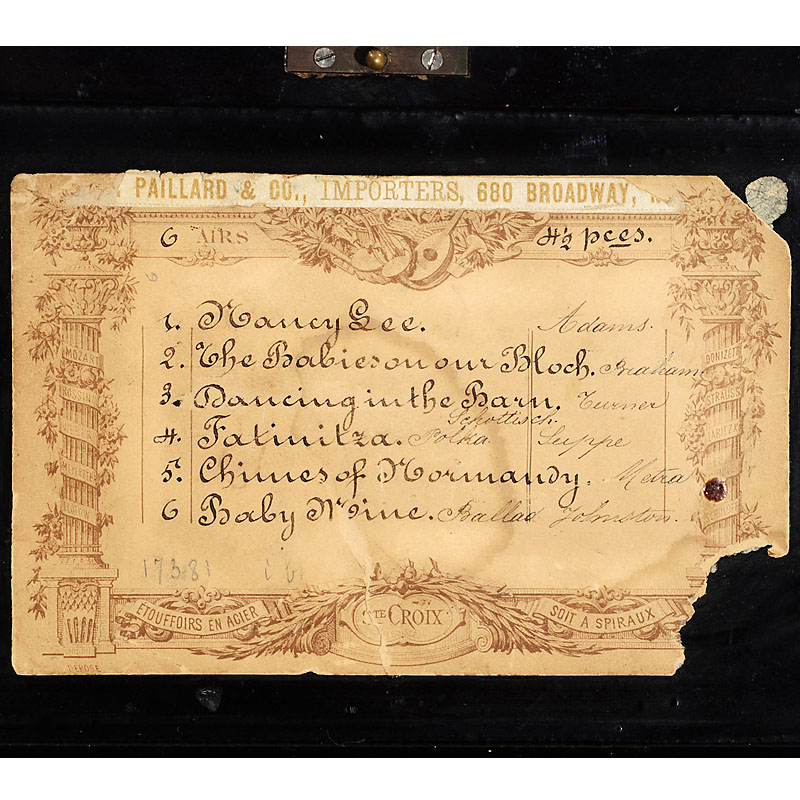 PAILLARD & CO., IMPORTERS, 680 BROADWAY,
6 AIRS 4½ pces.
1. Nancy Lee. Adams.
2. The Babies on our Bloch. Braham
3. Dancing in the Barn. Turner
Schottisch.
4. Fatinitza. Polka Suppe
5. Chimes of Normandy. Metra
6 Baby Mine. Ballad Johnston.
17381
MOZART
ROSSINI
DONIZETTI
STRAUSS
ETOUFFOIRS EN ACIER
STE CROIX
SOIT A SPIRAUX
DEPOSE